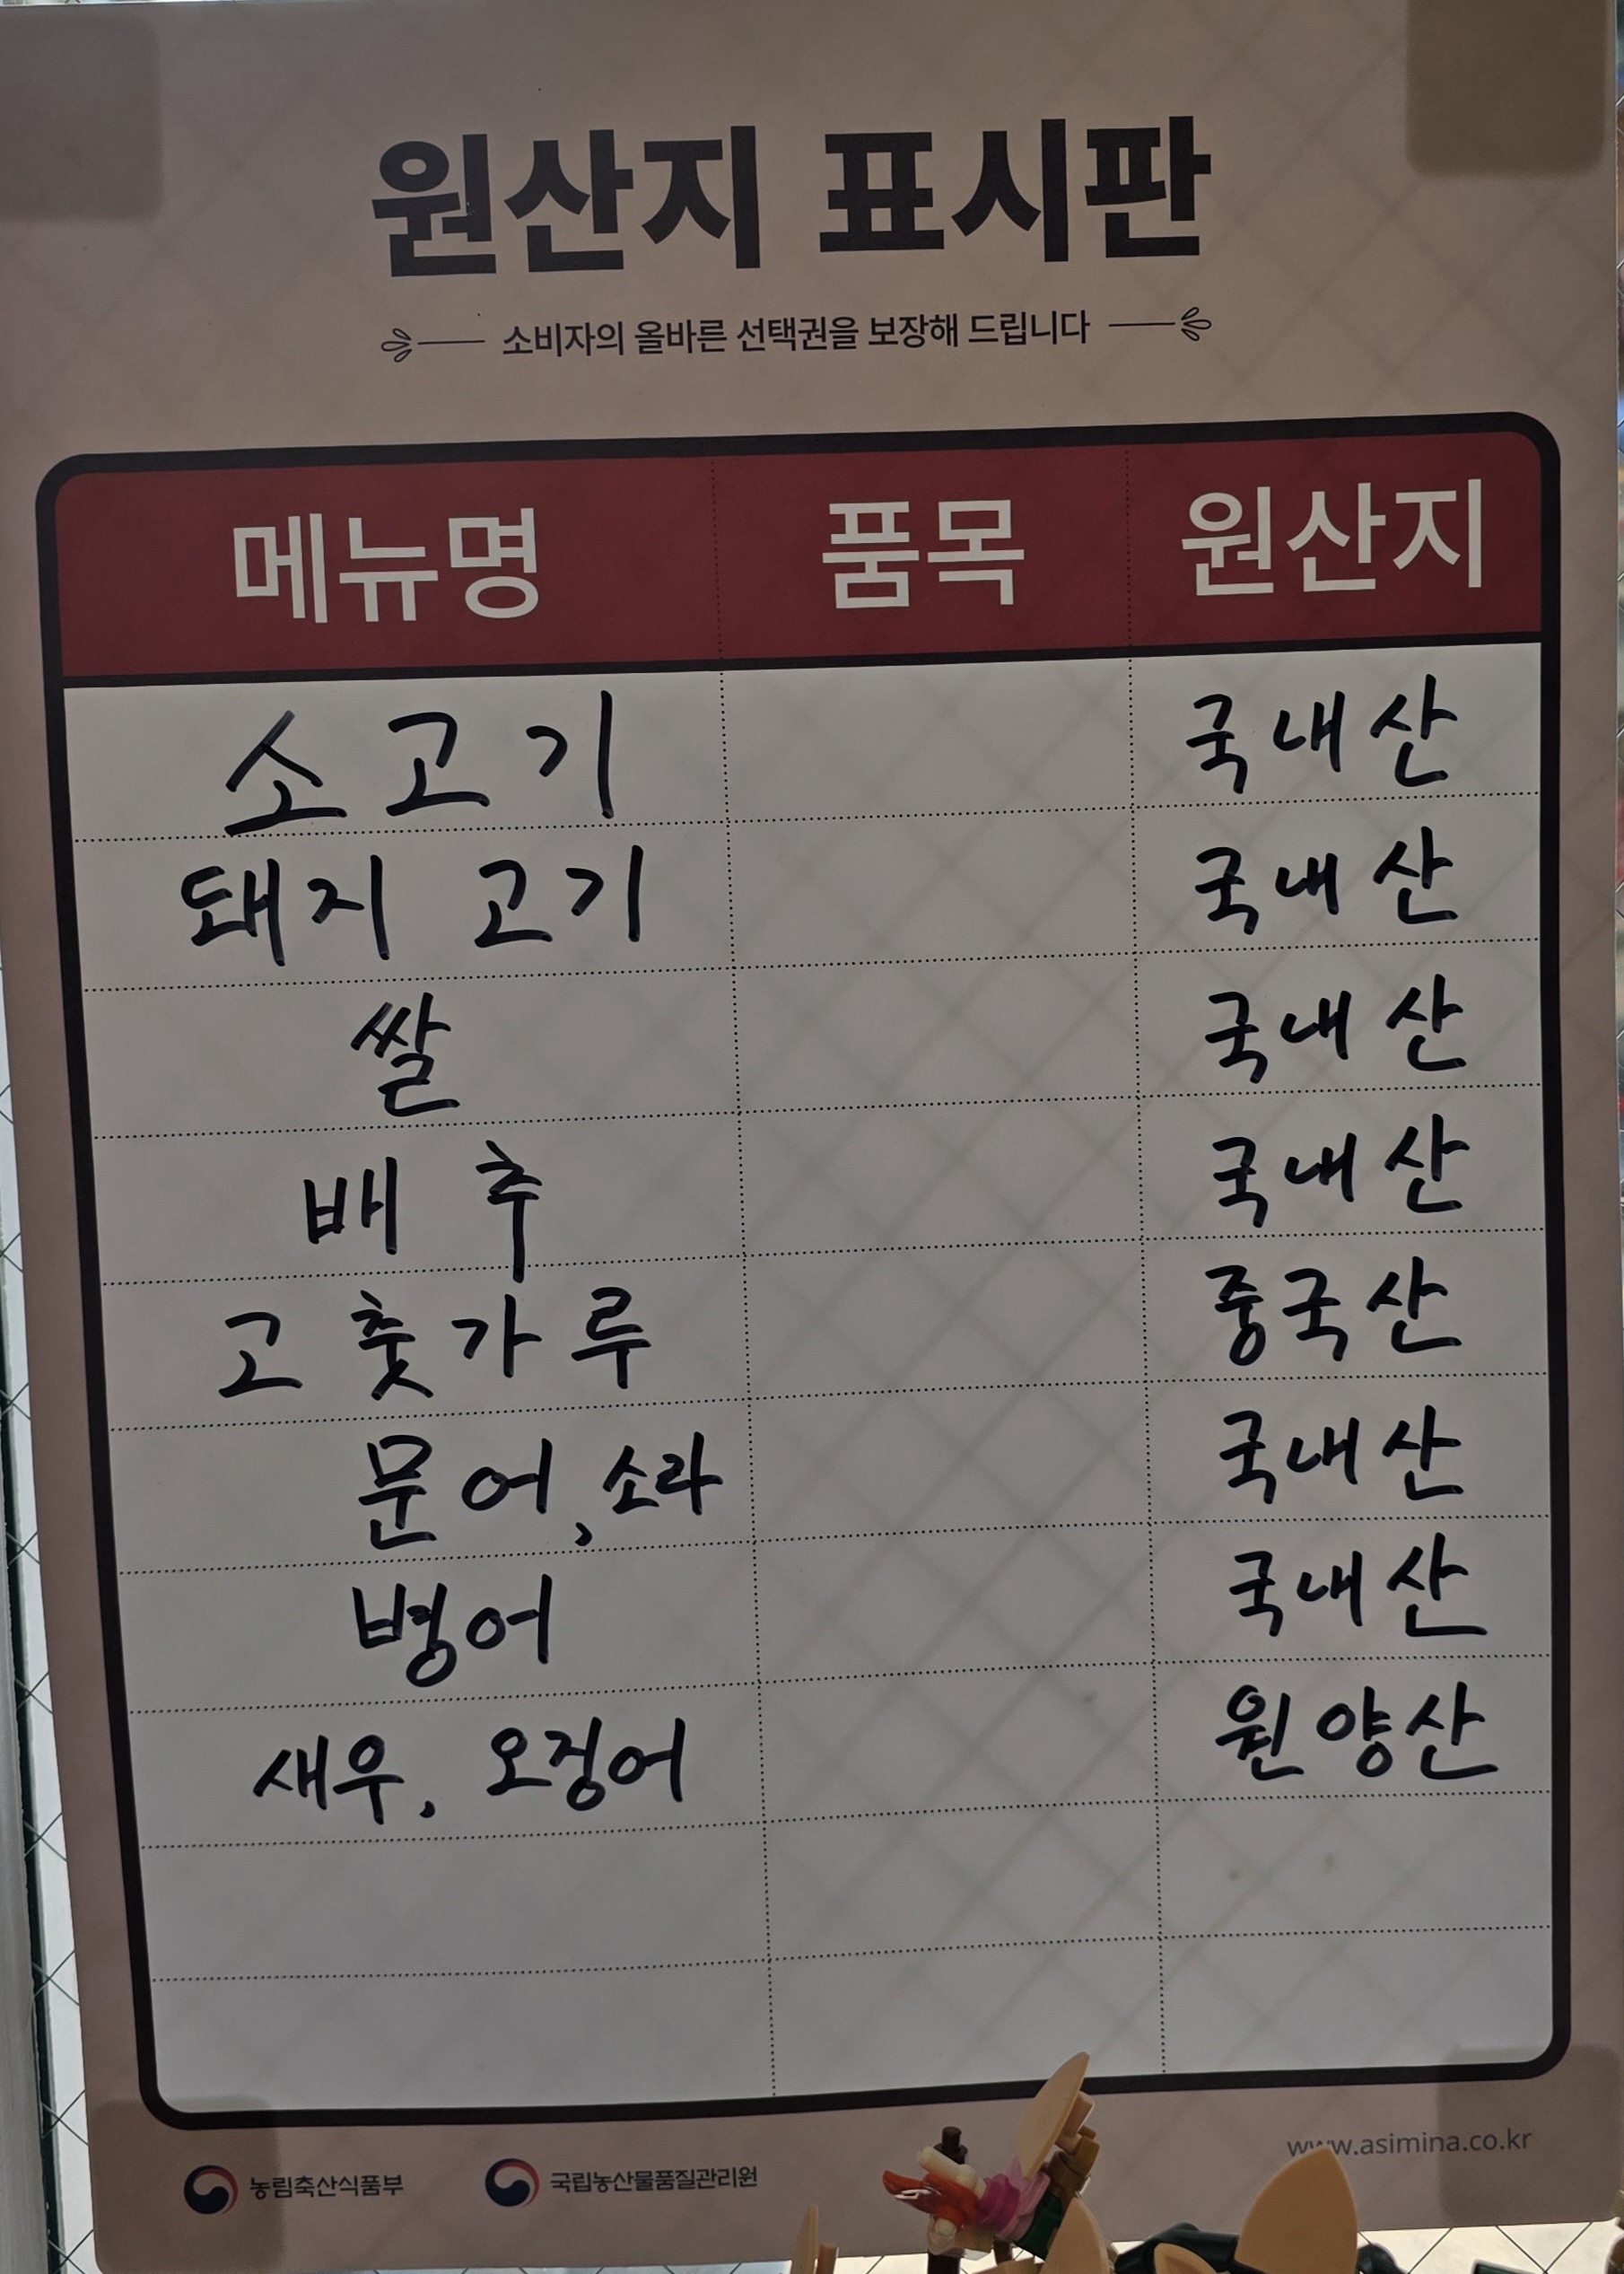 원산지 표시판
소비자의 올바른 선택권을 보장해 드립니다
메뉴명 품목 원산지
소고기 국내산
돼지 고기 국내산
쌀 국내산
배추 국내산
고춧가루 중국산
문어, 소라 국내산
병어 국내산
새우, 오징어 원양산
농림축산식품부 국립농산물품질관리원 www.asimina.co.kr